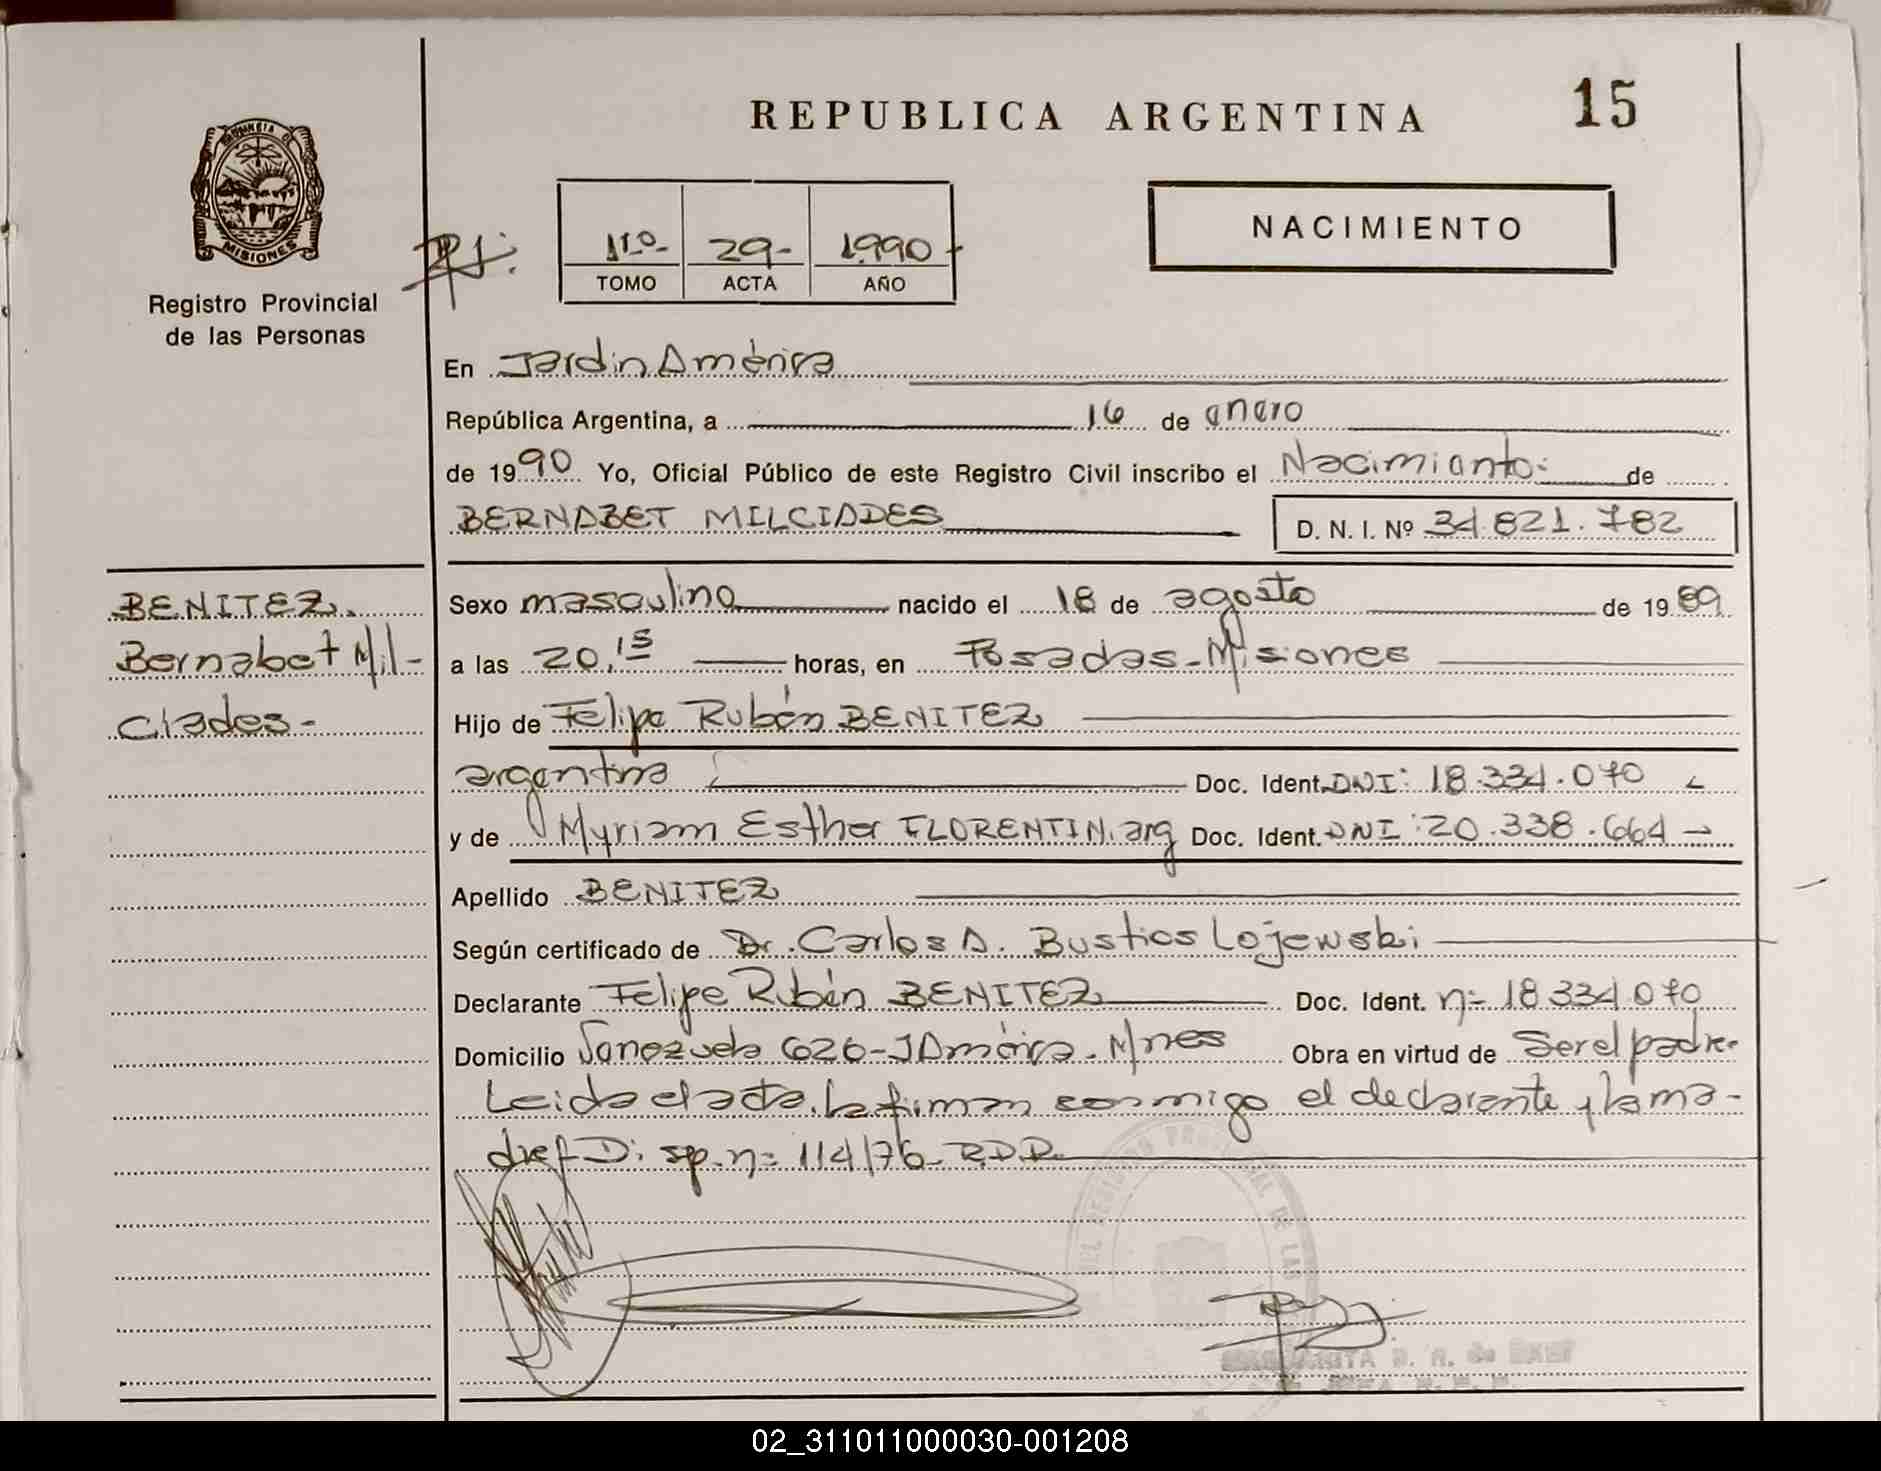 REPUBLICA ARGENTINA
15
PROVINCIA DE
MISIONES
Registro Provincial
de las Personas
NACIMIENTO
1º- 29- 1.990
TOMO ACTA AÑO
En Jardin América
República Argentina, a 16 de enero
de 1990 Yo, Oficial Público de este Registro Civil inscribo el Nacimiento: de
BERNABET MILCIADES D. N. I. Nº 34.821.782
BENITEZ.
Bernabet Mil-
ciades-
Sexo masculino nacido el 18 de agosto de 1989
a las 20,15 horas, en Posadas-Misiones
Hijo de Felipe Rubén BENITEZ
argentina Doc. Ident. DNI: 18.334.070
y de Myriam Esther FLORENTIN. arg Doc. Ident. DNI: 20.338.664
Apellido BENITEZ
Según certificado de Dr. Carlos A. Bustios Lojewski
Declarante Felipe Rubén BENITEZ Doc. Ident. nº 18334.070
Domicilio 626-J América. Mnes Obra en virtud de Ser el padre-
Leida el acta, la firman conmigo el declarante y la ma-
dre Disp. nº 114/76- RDP.
DEL REGISTRO PROVINCIAL DE LAS
02_311011000030-001208